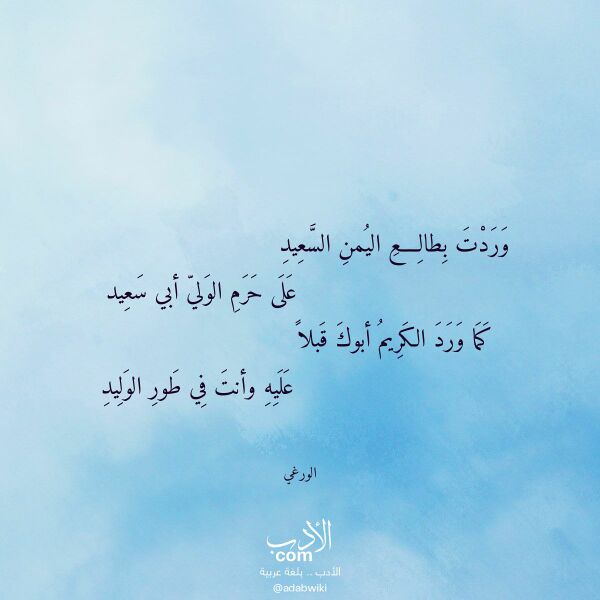 وَرَدْتَ بِطالِـــعِ اليُمنِ السَّعِيدِ
عَلَى حَرَمِ الوَليّ أبي سَعِيد
كَمَا وَرَدَ الكَرِيمُ أبوكَ قَبلاً
عَلَيِهِ وأنتَ فِي طَورِ الوَلِيدِ
الورغي
الأدب
com
الأدب .. بلغة عربية
@adabwiki